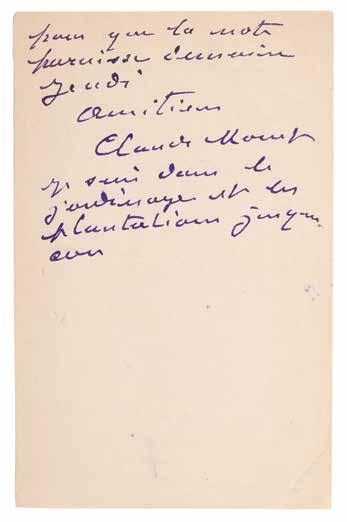 pour que la note
paraisse demain
jeudi
Amitiés
Claude Monet
je suis dans le
jardinage et les
plantations jusqu'au
cou